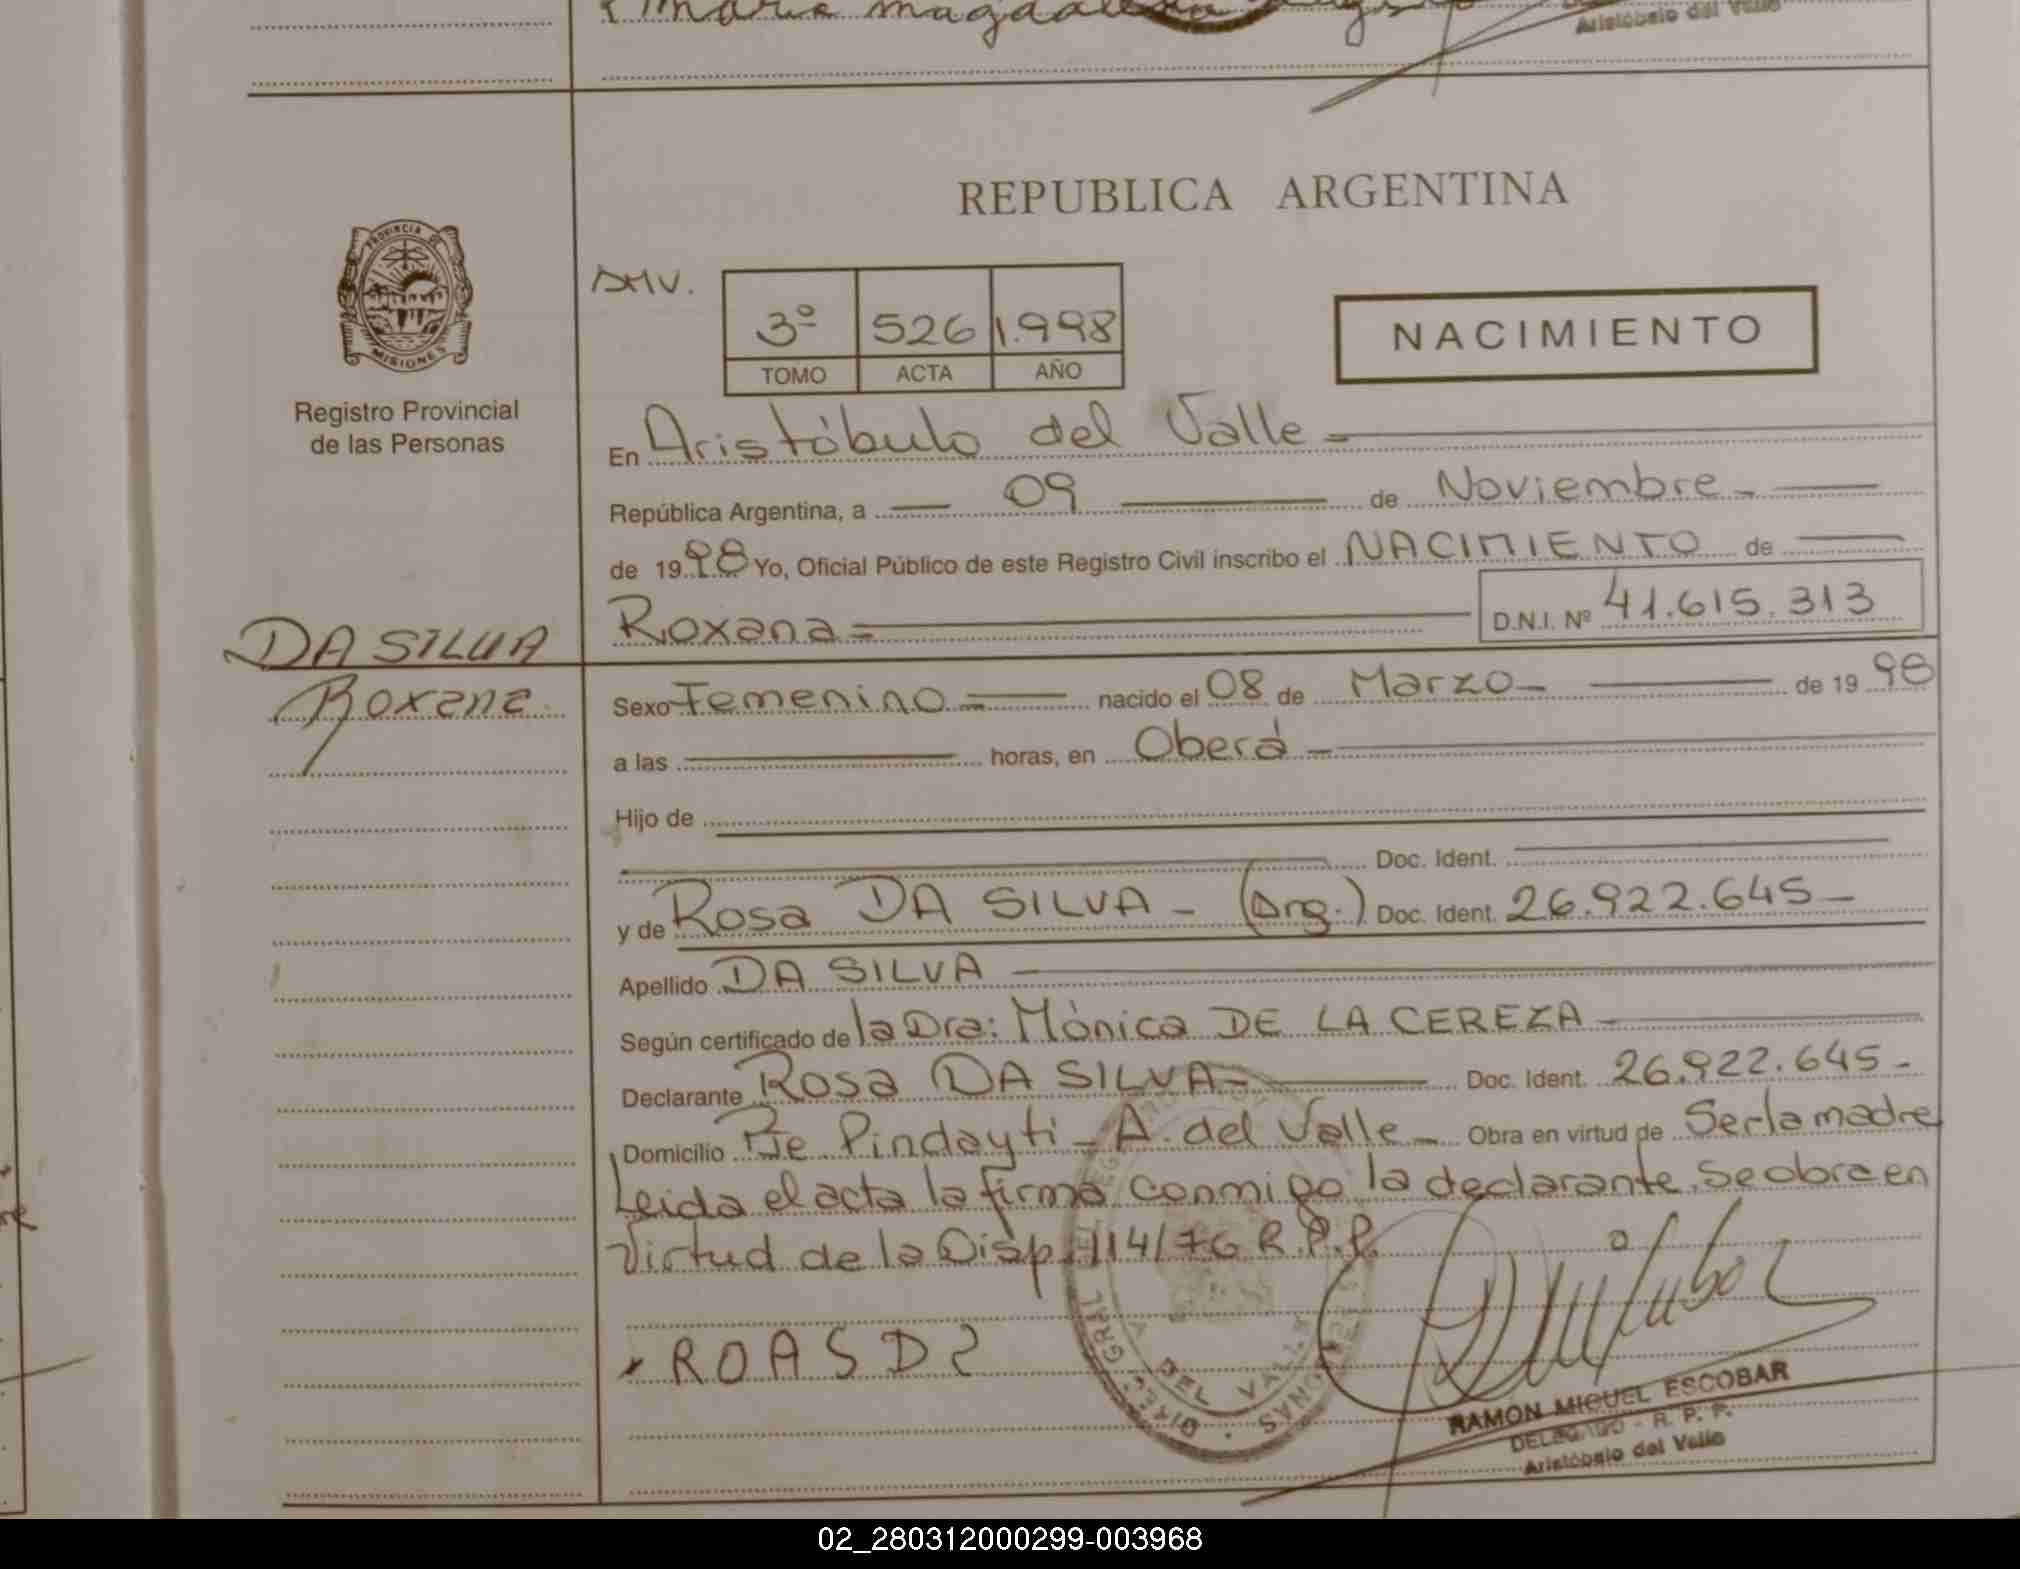 Maria Magdalena
Aristóbulo del Valle
REPUBLICA ARGENTINA
PROVINCIA DE
MISIONES
Registro Provincial
de las Personas
3º 526 1.998
TOMO ACTA AÑO
NACIMIENTO
En Aristóbulo del Valle
República Argentina, a 09 de Noviembre
de 1998 Yo, Oficial Público de este Registro Civil inscribo el NACIMIENTO de
Roxana D.N.I. Nº 41.615.313
DA SILVA
Roxana
Sexo Femenino nacido el 08 de Marzo de 1998
a las horas, en Oberá
Hijo de
Doc. Ident.
y de Rosa DA SILVA - (Arg.) Doc. Ident. 26.922.645
Apellido DA SILVA
Según certificado de la Dra: Mónica DE LA CEREZA
Declarante Rosa DA SILVA Doc. Ident. 26.922.645
Domicilio Pje Pindayti - A. del Valle Obra en virtud de Ser la madre
Leida el acta la firma conmigo la declarante. Se obra en
Virtud de la Disp. 114/76 R.P.P.
ROASD
DEL VALLE
RAMON MIGUEL ESCOBAR
DELEGADO - R. P. P.
Aristóbulo del Valle
02_280312000299-003968